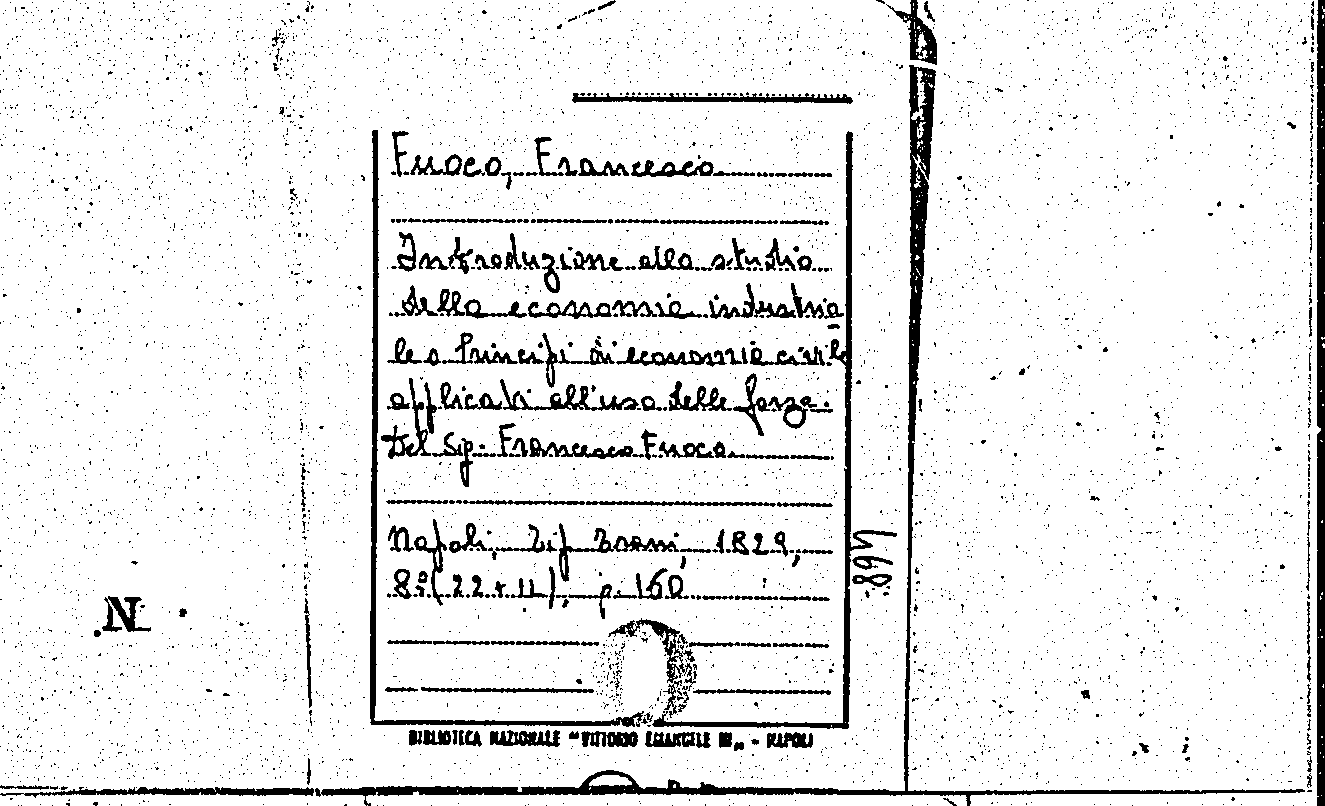 Fuoco, Francesco.
Introduzione allo studio
della economia industria
le o Principj di economia civile
applicati all'uso delle forze.
Del Sig. Francesco Fuoco.
Napoli, Tip Trani, 1829,
8º (22 + 11), p. 160
BIBLIOTECA NAZIONALE "VITTORIO EMANUELE III„ - NAPOLI
N